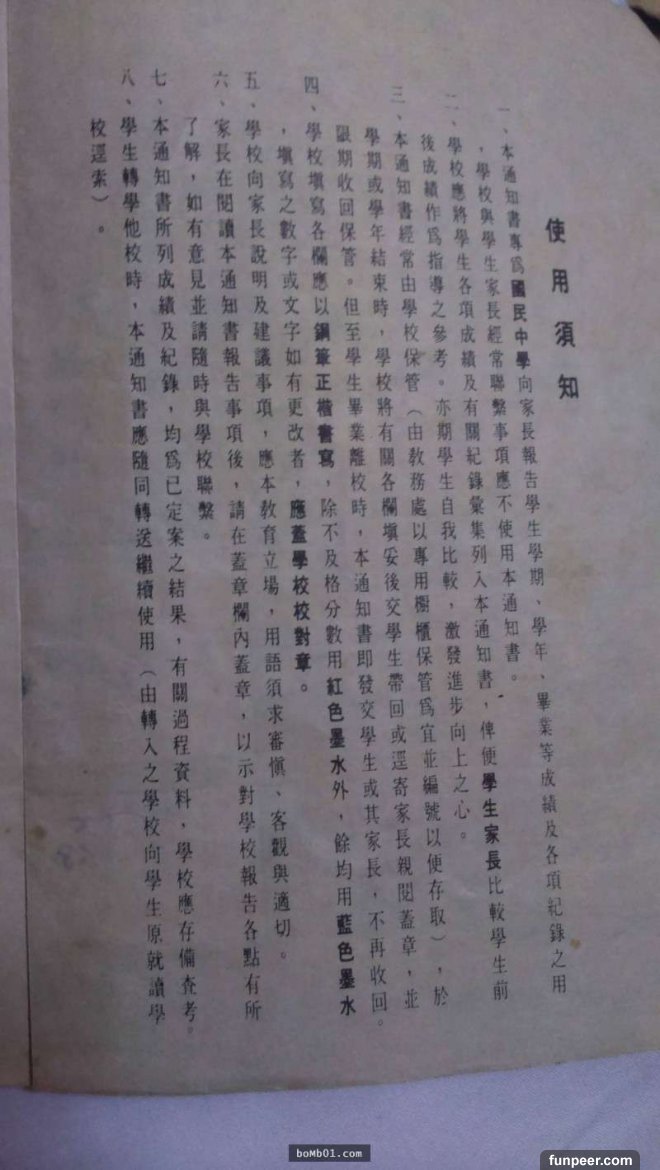 使用須知
一、本通知書專爲國民中學向家長報告學生學期、學年、畢業等成績及各項紀錄之用
，學校與學生家長經常聯繫事項應不使用本通知書。
二、學校應將學生各項成績及有關紀錄彙集列入本通知書，俾便學生家長比較學生前
後成績作爲指導之參考。亦期學生自我比較，激發進步向上之心。
三、本通知書經常由學校保管（由敎務處以專用櫥櫃保管爲宜並編號以便存取），於
學期或學年結束時，學校將有關各欄塡妥後交學生帶回或逕寄家長親閱蓋章，並
限期收回保管。但至學生畢業離校時，本通知書即發交學生或其家長，不再收回。
四、學校塡寫各欄應以鋼筆正楷書寫，除不及格分數用紅色墨水外，餘均用藍色墨水
，塡寫之數字或文字如有更改者，應蓋學校校對章。
五、學校向家長說明及建議事項，應本敎育立場，用語須求審愼、客觀與適切。
六、家長在閱讀本通知書報告事項後，請在蓋章欄內蓋章，以示對學校報告各點有所
了解，如有意見並請隨時與學校聯繫。
七、本通知書所列成績及紀錄，均爲已定案之結果，有關過程資料，學校應存備查考。
八、學生轉學他校時，本通知書應隨同轉送繼續使用（由轉入之學校向學生原就讀學
校逕索）。
boMb01.com
funpeer.com